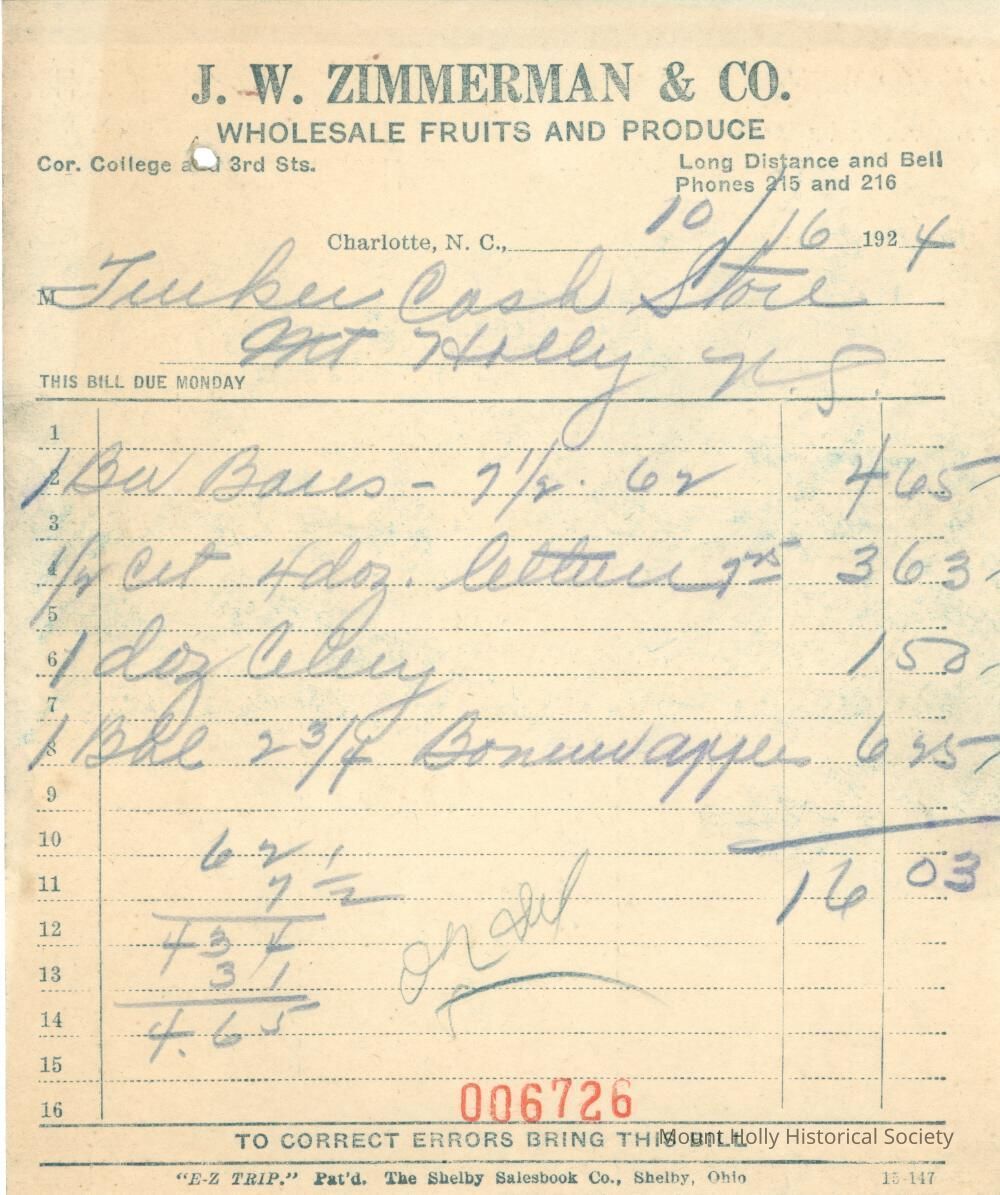 J. W. ZIMMERMAN & CO.
WHOLESALE FRUITS AND PRODUCE
Cor. College and 3rd Sts.
Long Distance and Bell
Phones 215 and 216
Charlotte, N. C., 10/16 1924
M Tucker Cash Store
Mt Holly N.C.
THIS BILL DUE MONDAY
1
2 1 - 7 1/2. 62 4 65
3
4 1/2 crt 4 doz. lettuce 7 25 3 63
5
6 1 doz Celery 1 50
7
8 1 Bbl 2 3/4 6 25
9
10 62
11 7 1/2 16 03
12 434
13 31
14 4.65
15
16
006726
TO CORRECT ERRORS BRING THIS BILL
Mount Holly Historical Society
"E-Z TRIP." Pat'd. The Shelby Salesbook Co., Shelby, Ohio 15-147